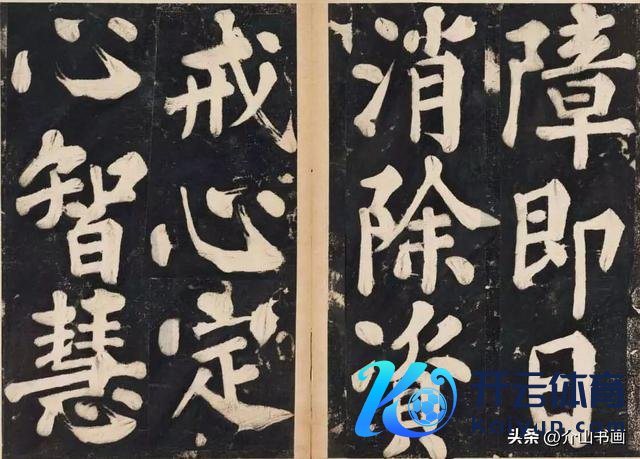 障即日
消除資
戒心定
心智慧
开云体育
头条@介山书画